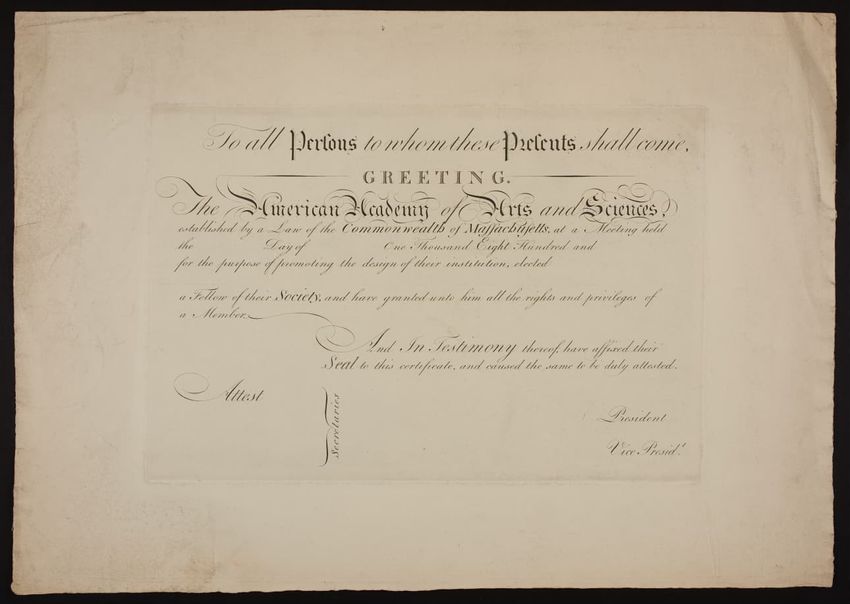 To all Perſons to whom these Preſents shall come,
GREETING.
The American Academy of Arts and Sciences,
established by a Law of the Commonwealth of Maſſachuſetts, at a Meeting held
the Day of One Thousand Eight Hundred and
for the purpose of promoting the design of their institution, elected
a Fellow of their Society, and have granted unto him all the rights and privileges of
a Member.
And In Testimony thereof, have affixed their
Seal to this certificate, and caused the same to be duly attested.
Attest
Secretaries
President
Vice Presid.t